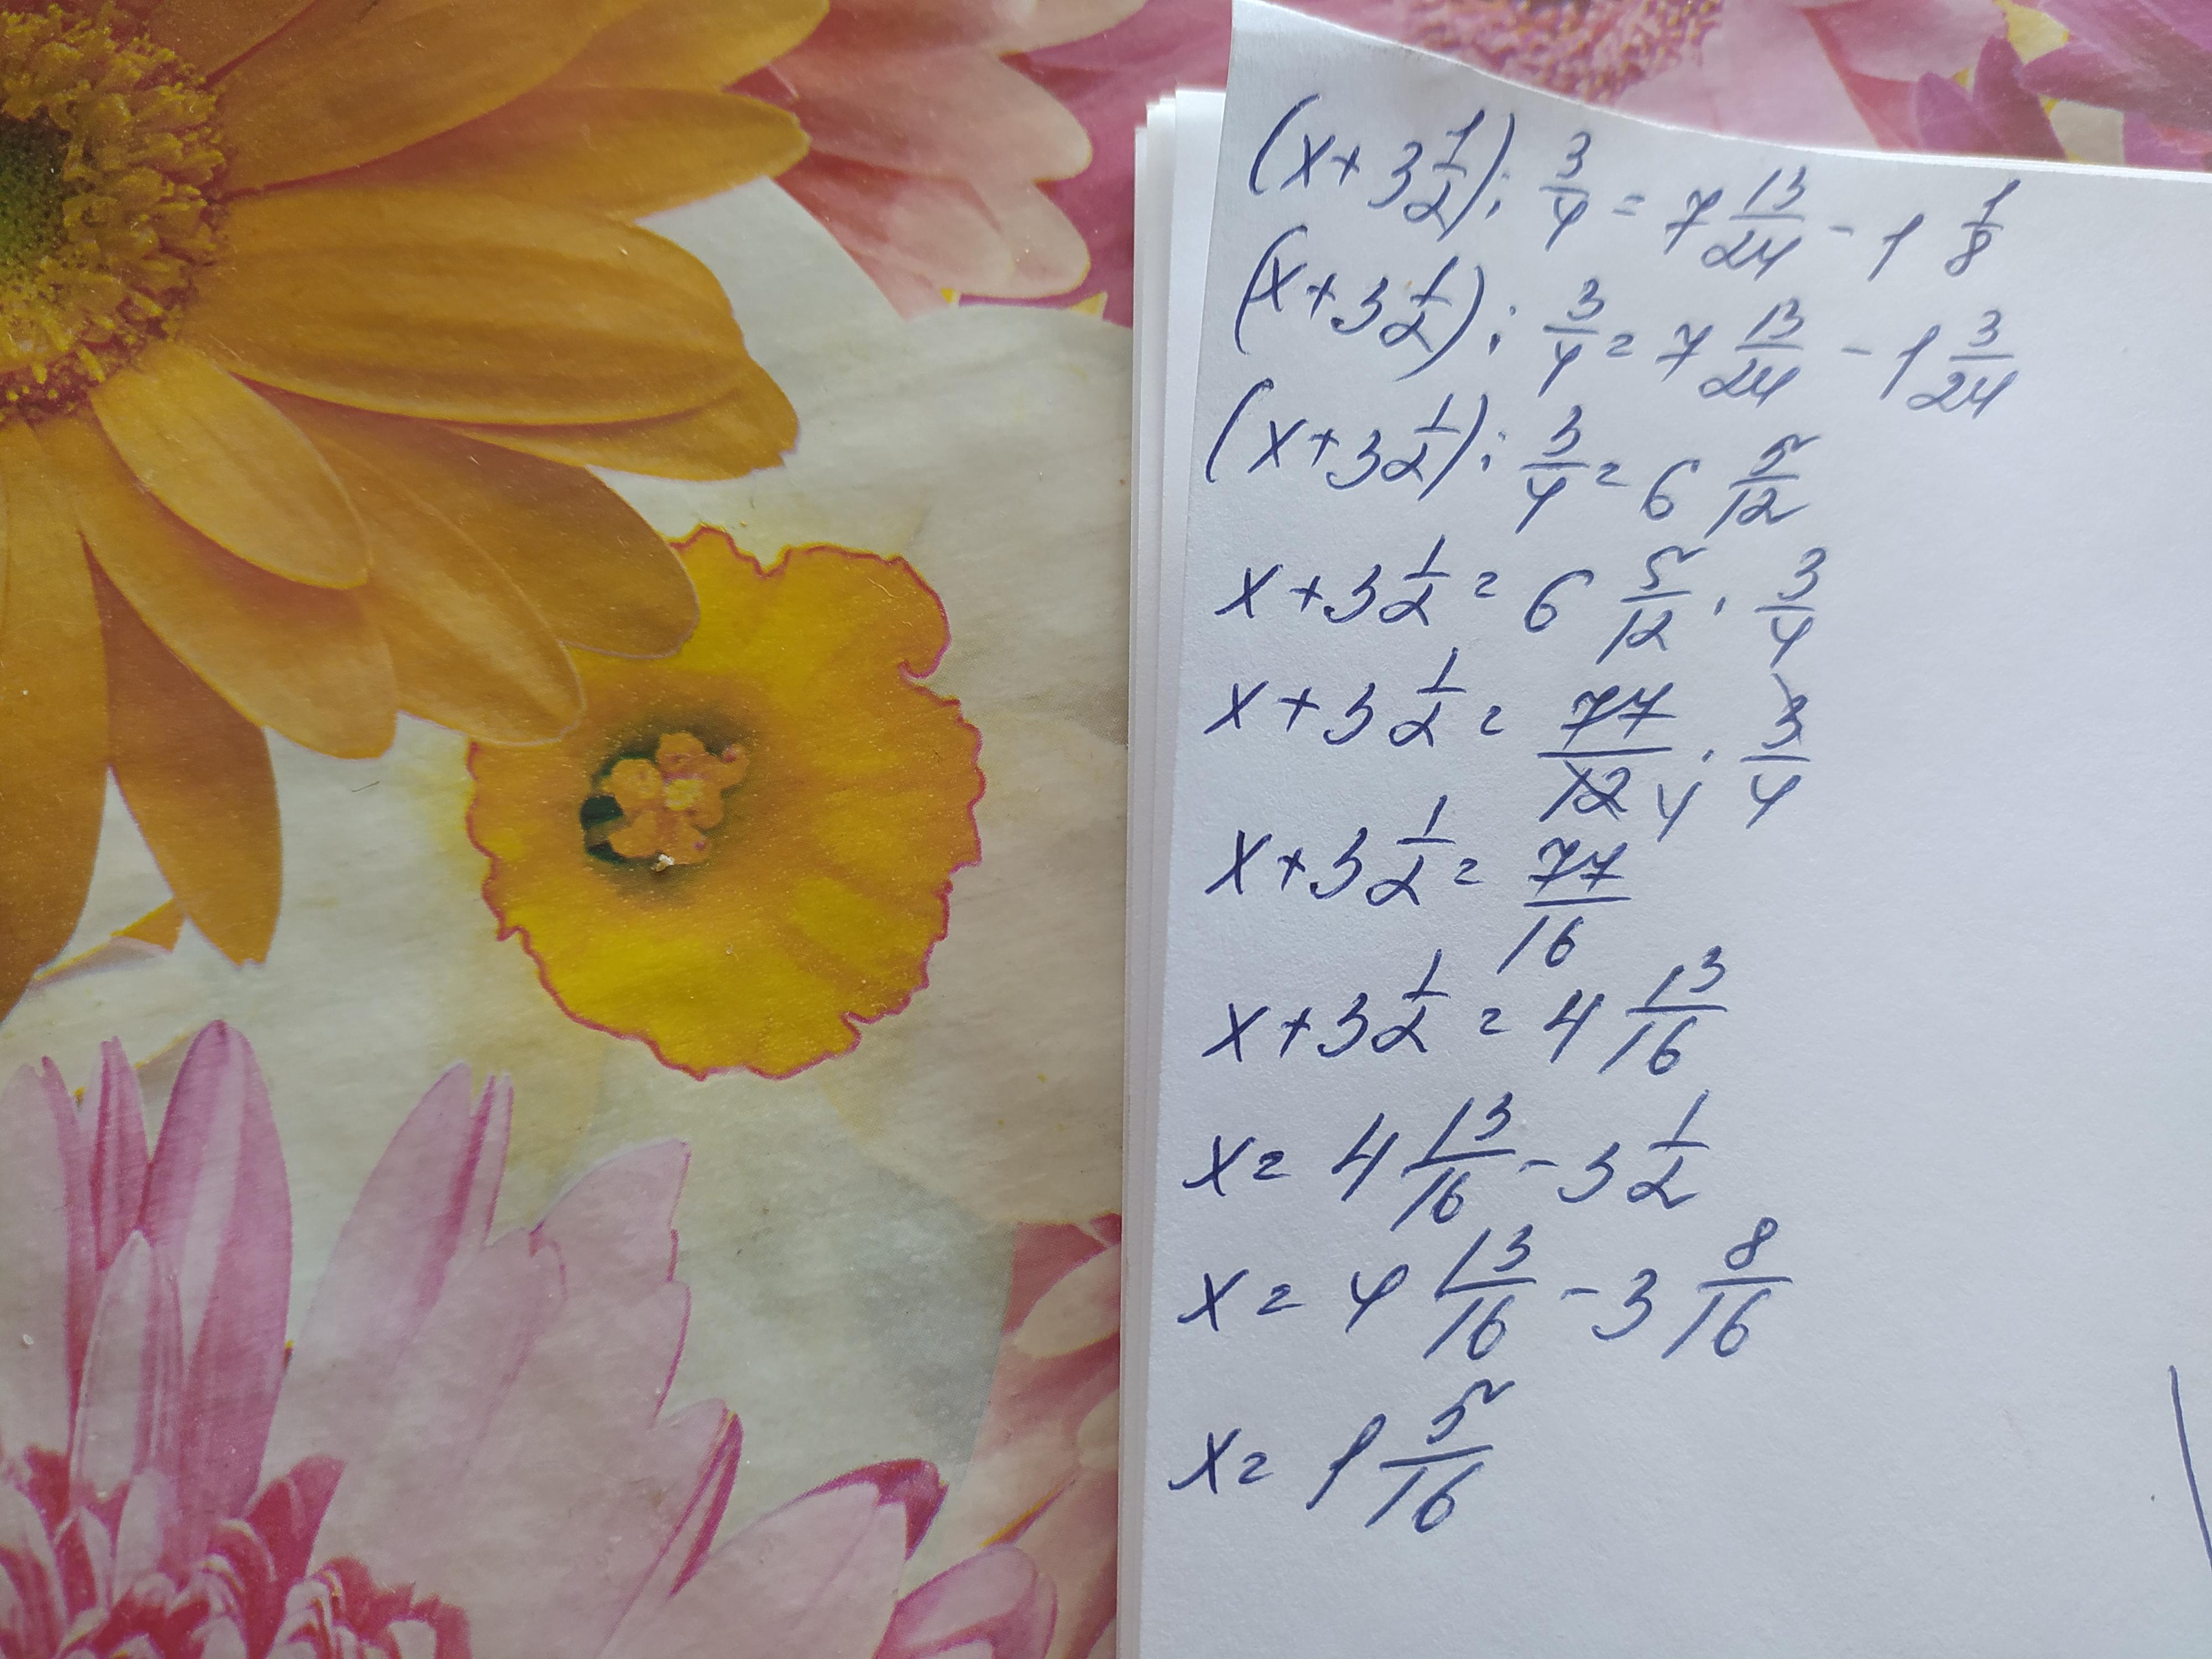 (x + 3 1/2) : 3/4 = 7 13/24 - 1 1/8
(x + 3 1/2) : 3/4 = 7 13/24 - 1 3/24
(x + 3 1/2) : 3/4 = 6 5/12
x + 3 1/2 = 6 5/12 · 3/4
x + 3 1/2 = 77/12 4 · 3/4
x + 3 1/2 = 77/16
x + 3 1/2 = 4 13/16
x = 4 13/16 - 3 1/2
x = 4 13/16 - 3 8/16
x = 1 5/16